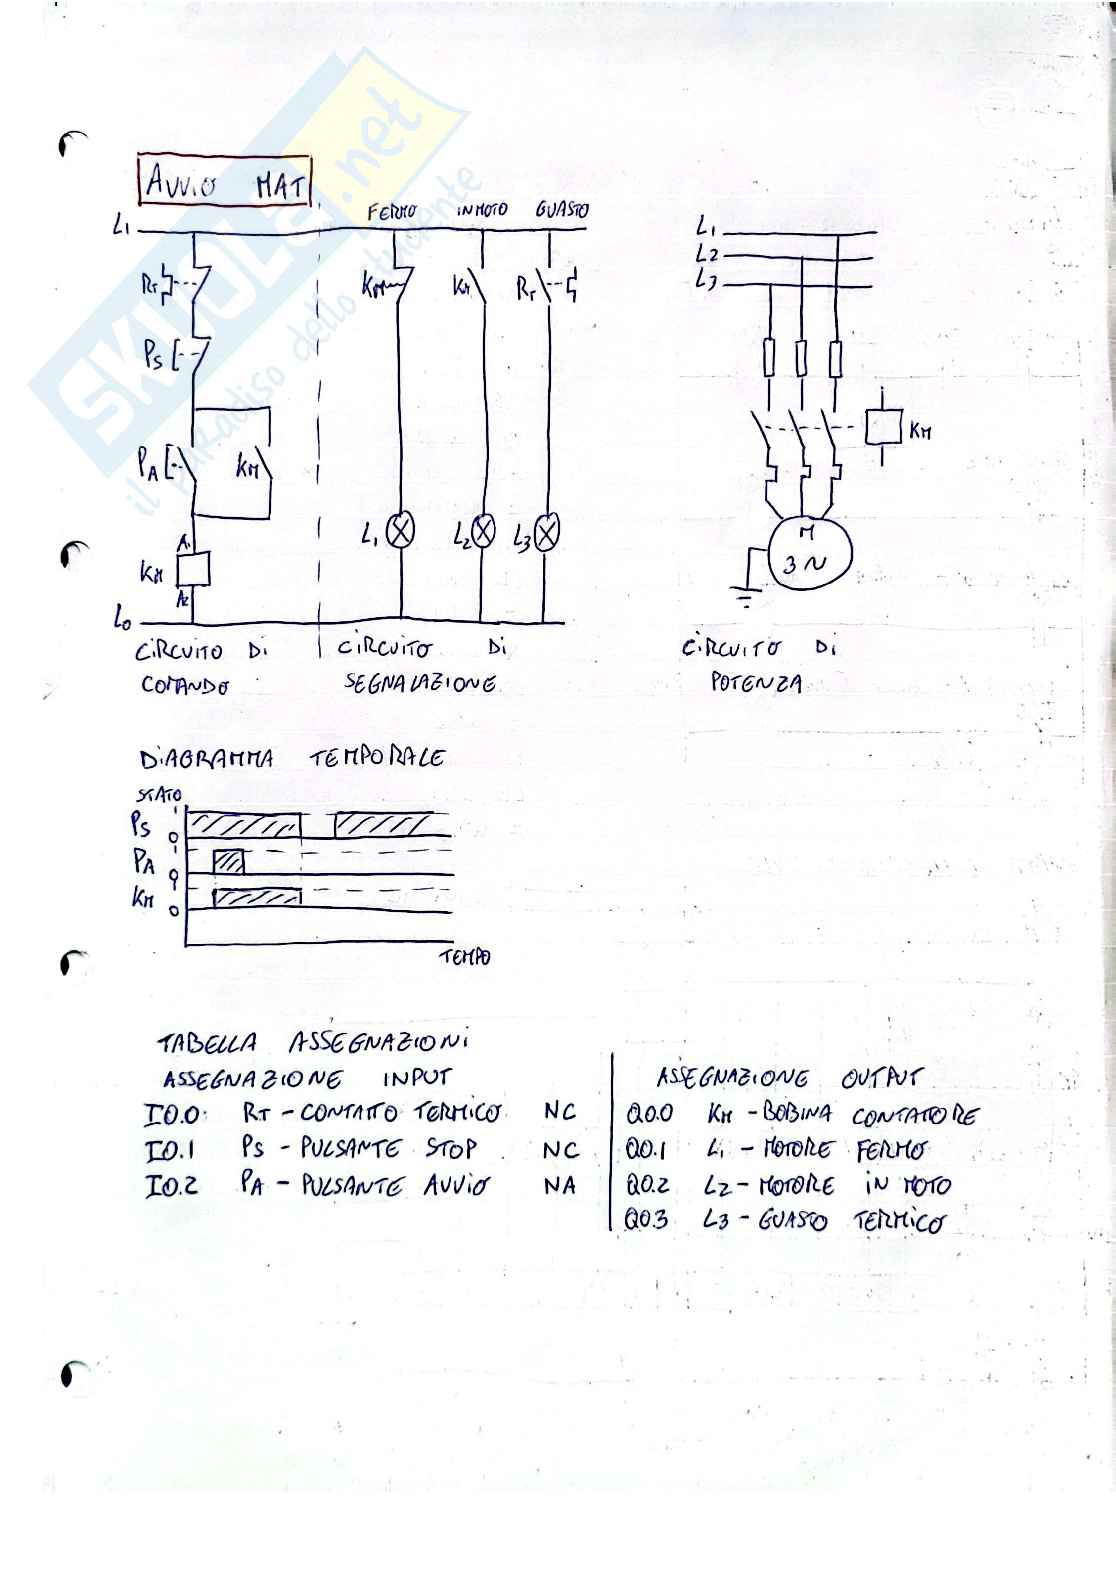 AVVIO MAT
FERMO IN MOTO GUASTO
L1
RT
KM KM RT
PS
PA KM
L1 L2 L3
A1
KM
A2
L0
CIRCUITO DI COMANDO
CIRCUITO DI SEGNALAZIONE
L1
L2
L3
KM
M
3 ~
CIRCUITO DI POTENZA
DIAGRAMMA TEMPORALE
STATO
PS 1 0
PA 1 0
KM 1 0
TEMPO
TABELLA ASSEGNAZIONI
ASSEGNAZIONE INPUT
I0.0 RT - CONTATTO TERMICO NC
I0.1 PS - PULSANTE STOP NC
I0.2 PA - PULSANTE AVVIO NA
ASSEGNAZIONE OUTPUT
Q0.0 KM - BOBINA CONTATORE
Q0.1 L1 - MOTORE FERMO
Q0.2 L2 - MOTORE IN MOTO
Q0.3 L3 - GUASTO TERMICO
SKUOLA.net
il paradiso dello studente